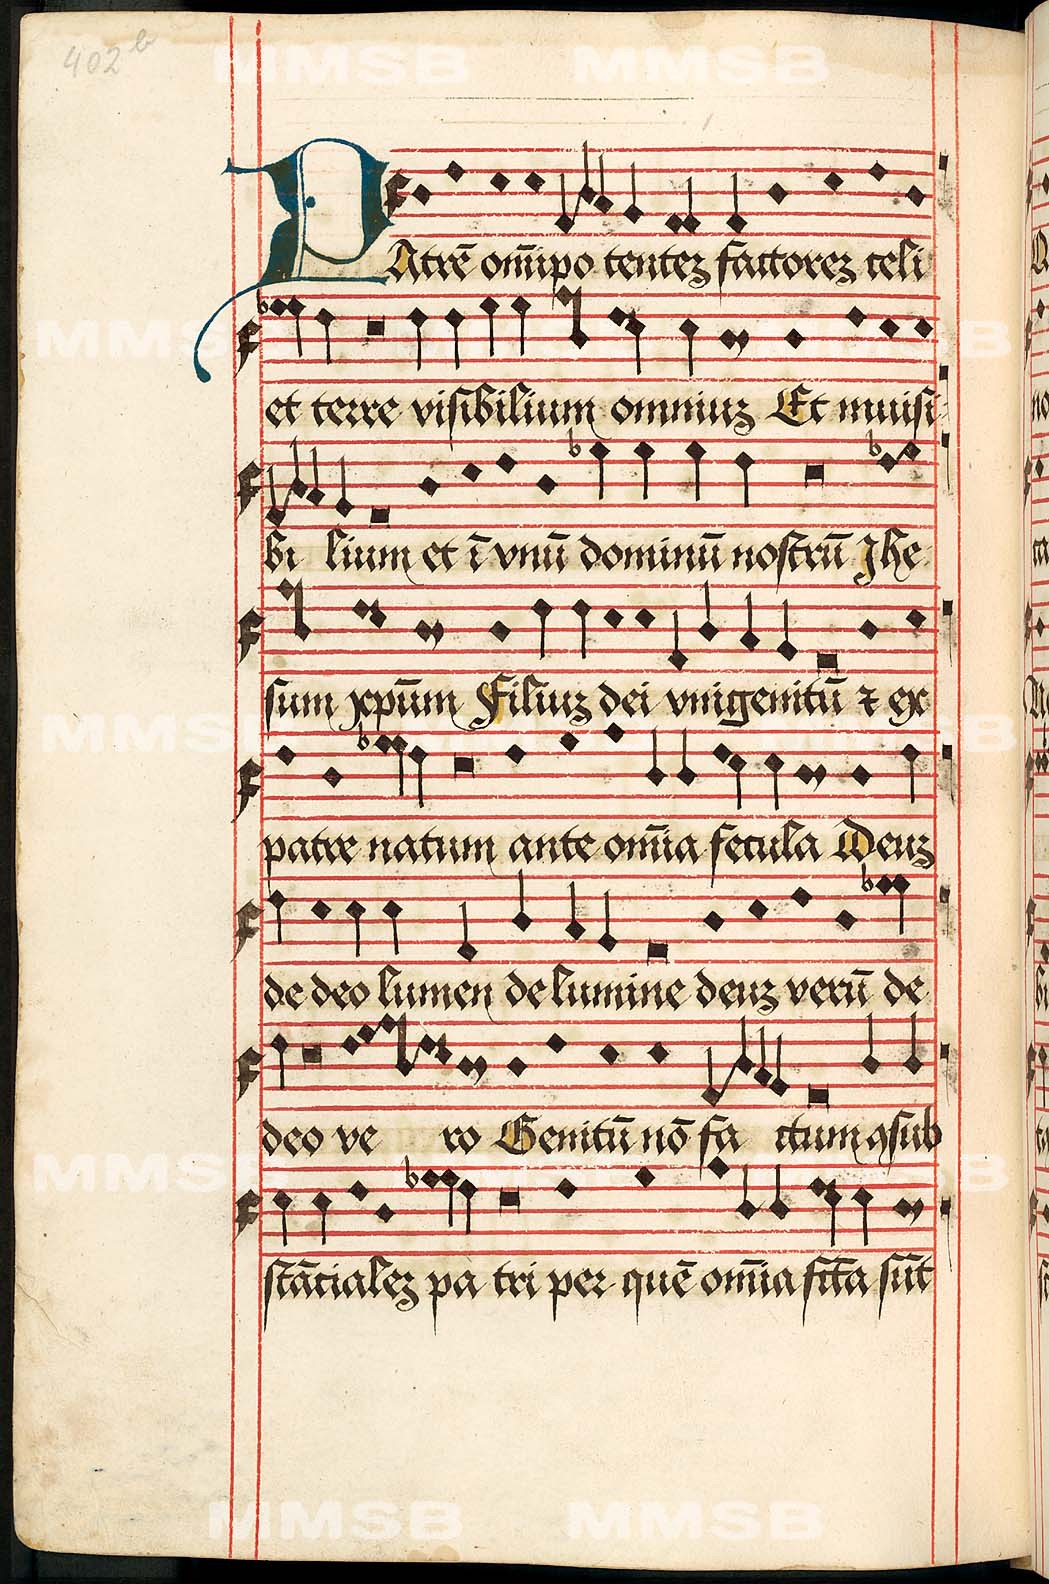 402b
MMSB MMSB
PAtrē om̄ipo tentez factorez celi
MMSB
et terre visibilium omniuz Et inuisi
bi lium et ī vnū dominū nostrū Jhe
sum xpūm Filiuz dei vnigenitū ⁊ ex
MMSB
patre natum ante om̄ia secula Deuz
de deo lumen de lumine deuz verū de
deo ve ro Genitū nō fa ctum ꝯsub
MMSB
stātialez pa tri per quē om̄ia fct̄a sūt
MMSB MMSB